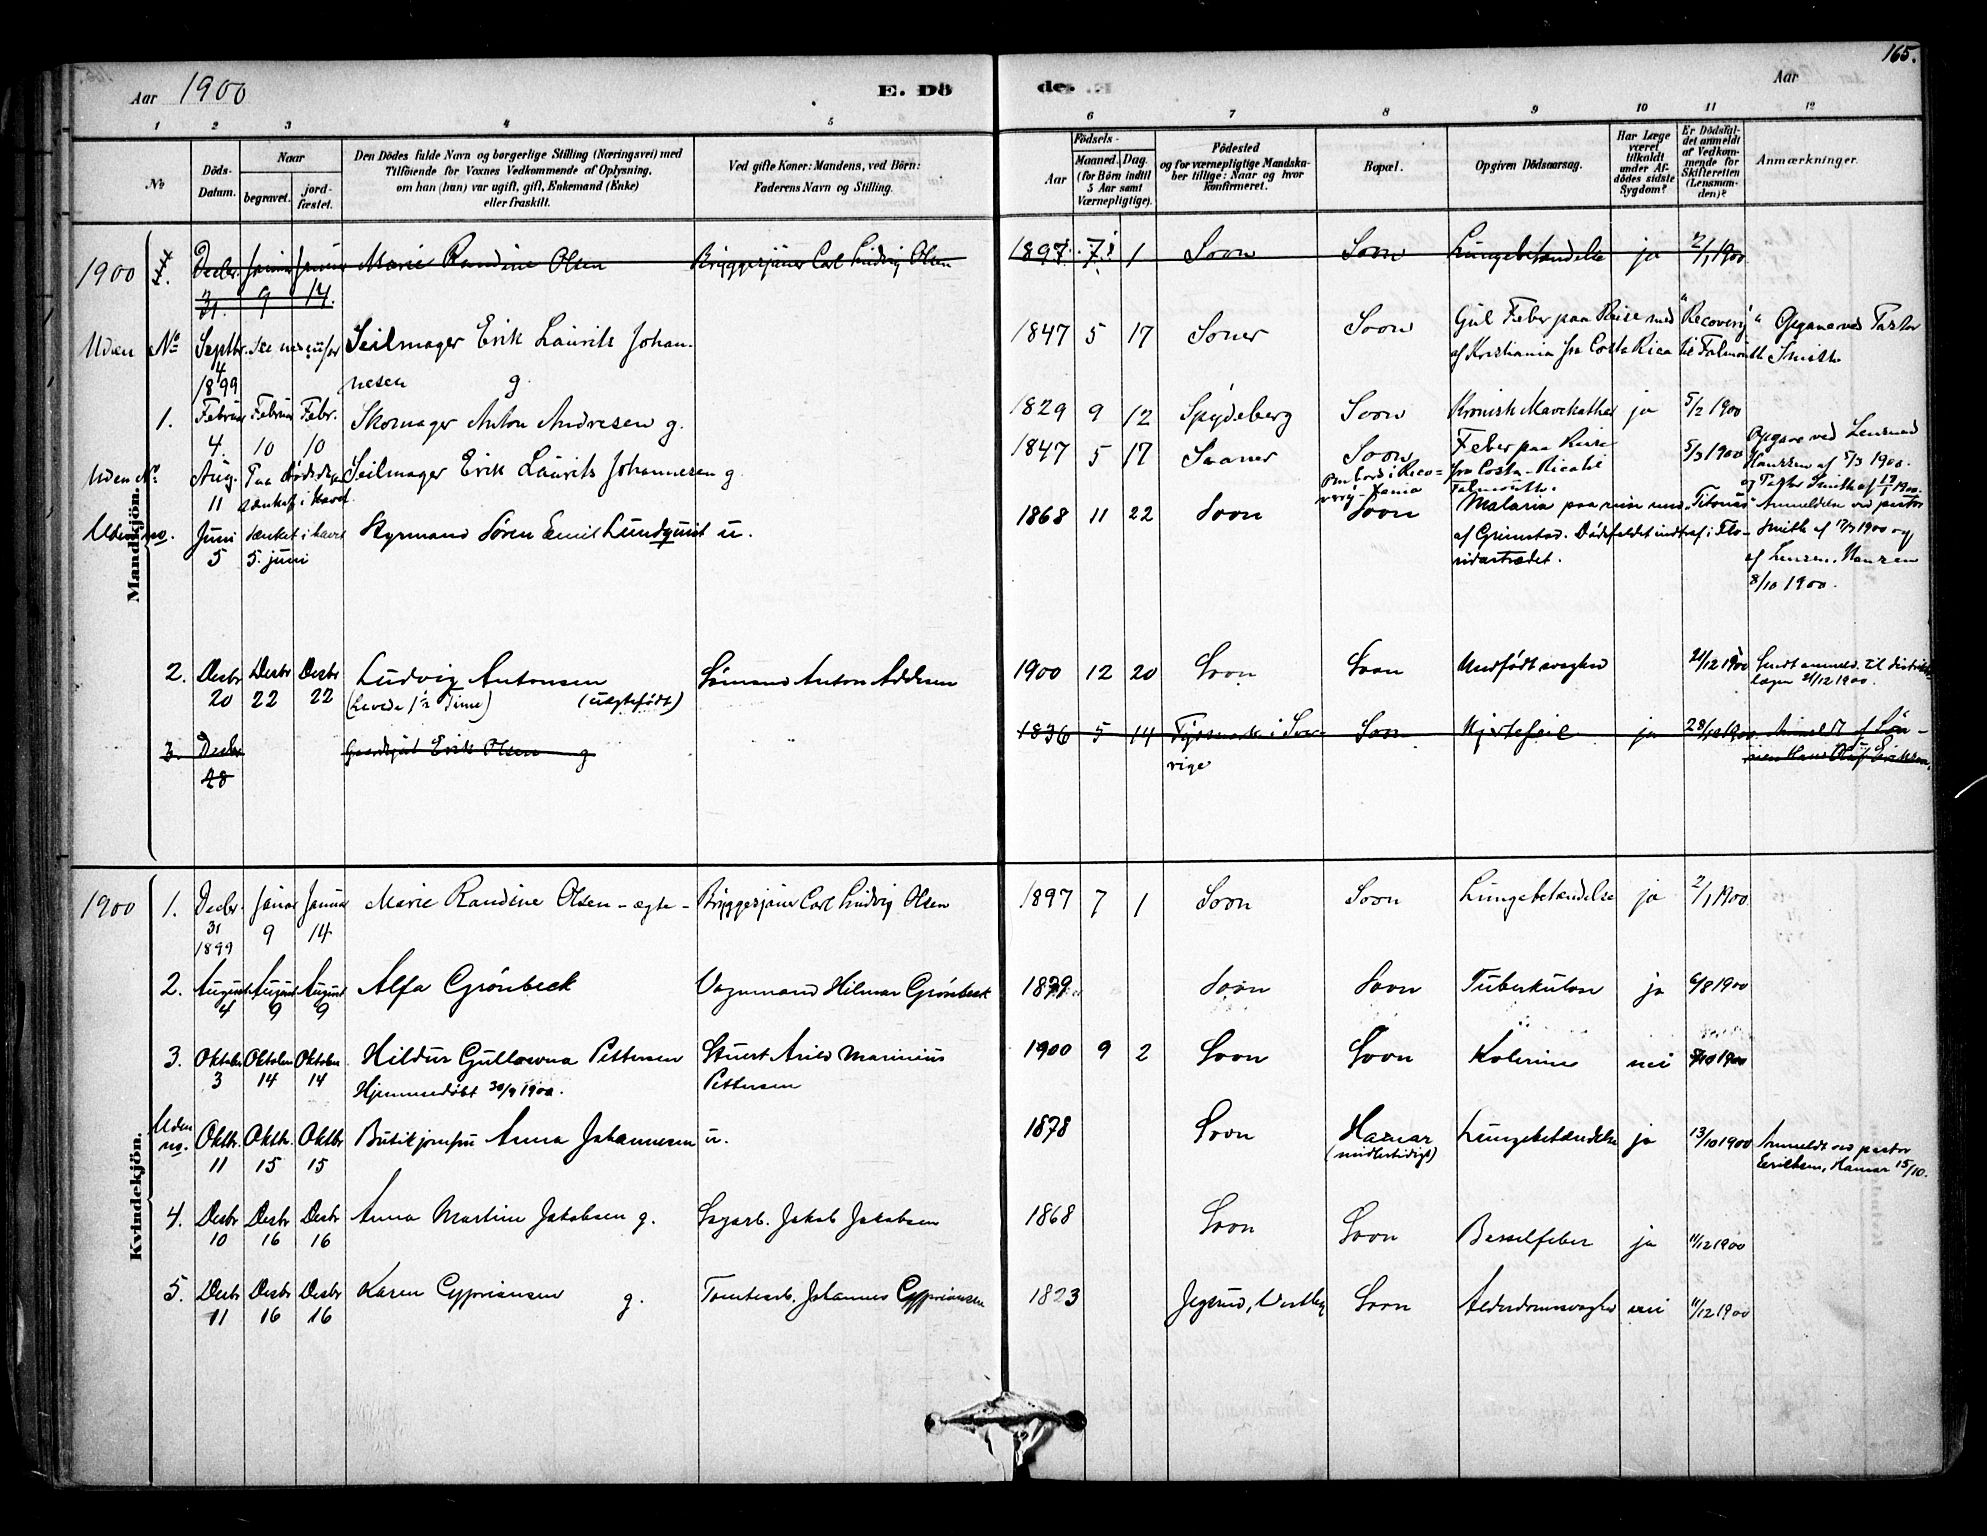 165.
Aar 1900 E. Dö de. Aar
1 2 3 4 5 6 7 8 9 10 11 12
No
Döds-Datum.
Naar
begravet.
jord-fæstet.
Den Dödes fulde Navn og borgerlige Stilling (Næringsvei) med
Tilföiende for Voxnes Vedkommende af Oplysning,
om han (hun) var ugift, gift, Enkemand (Enke)
eller fraskilt.
Ved gifte Koner: Mandens, ved Börn:
Faderens Navn og Stilling.
Födsels-
Aar
Maaned. Dag.
(for Börn indtil
5 Aar samt
Værnepligtige).
Födested
og for værnepligtige Mandska-
ber tillige: Naar og hvor
konfirmeret.
Bopæl.
Opgiven Dödsaarsag.
Har Læge
været
tilkaldt
under Af-
dödes sidste
Sygdom?
Er Dödsfal-
det anmeldt
af Vedkom-
mende for
Skifteretten
(Lensman-
den)?
Anmærkninger.
Mandkjön.
1900 Decbr 31. Januar 9 Januar 14. Marie Randine Olsen Bryggesjauer Carl Ludvig Olsen 1897 7 1 Soon Soon Lungebetændelse ja 2/1 1900
Uden No Septbr 4 1899 Seilmager Erik Laurits Johan-
nesen g 1847 5 17 Soner Soon Gul Feber paa Reise med "Recovery"
af Kristiania fra Costa Rica til Falmouth Opgave ved Pastor
Smith
1. Februar 4. Februar 10 Febr. 10 Skomager Anton Andresen g. 1829 9 12 Spydeberg Soon Kronisk Mavekathar ja 5/2 1900
Uden No Aug. 11 Paa Dødsdagen
sænket i havet Seilmager Erik Laurits Johannesen g 1847 5 17 Saaner Soon
Ombord i Reco-
very Feber paa Reise
fra Costa-Rica til
Falmouth. 5/3 1900 Opgave ved Lensmd
Hanssen af 5/3 1900.
og Pastor Smith af
Uden no. Juni 5 sænket i havet
5. juni Styrmand Søren Emil Lundquist u. 1868 11 22 Soon Soon Malaria paa reise med "Titonus"
af Grimstad. Dødsfaldet indtraf i Flo-
ridastrædet. Anmeldelse ved pastor
Smith af 17/9 1900 og
af Lensm. Hansen
8/10 1900.
2. Desbr 20 Desbr 22 Desbr 22 Ludvig Antonsen
(Levede 1/2 Time) (uægtefødt) Sømand Anton Addesen 1900 12 20 Soon Soon Medfødt svaghed 21/12 1900 Sendt anmeld. til distrikts-
lægen 21/12 1900.
3. Desbr 28 Gaardgut Erik Olsen g 1836 5 14 Sver-
rige Soon Hjertefeil ja 28/12 1900. Anmeldt af Søn-
nen Hans Olaf Eriksen.
Kvindekjön.
1900 1. Decbr. 31 1899 Januar 9 Januar 14 Marie Randine Olsen - ægte - Bryggesjauer Carl Ludvig Olsen 1897 7 1 Soon Soon Lungebetændelse ja 2/1 1900
2. August 4 August 9 August 9 Alfa Grönbeck Vognmand Hilmar Grönbeck 1879 Soon Soon Tuberkulose ja 6/8 1900
3. Oktober 3 Oktober 14 Oktober 14 Hildur Gullowna Pettersen
Hjemmedøbt 30/9 1900. Stuert Arild Marinius
Pettersen 1900 9 2 Soon Soon Kolerine nei 1900
Uden no. Oktbr. 11 Oktb. 15 Oktbr 15 Butikjomfru Anna Johannesen u. 1878 Soon Hamar
(midlertidigt) Lungebetændelse ja 13/10 1900 Anmeldt ved pastor
Eriksen, Hamar 15/10.
4. Desbr 10 Desbr 16 Desbr 16 Anna Martine Jakobsen g. Sagarb. Jakob Jakobsen 1868 Soon Soon Barselfeber ja 11/12 1900
5. Desbr 11 Desbr 16 Desbr 16 Karen Cypriansen g. Tomtearb. Johannes Cypriansen 1823 Jegsrud, Vestby Soon Alderdomssvaghed nei 11/12 1900